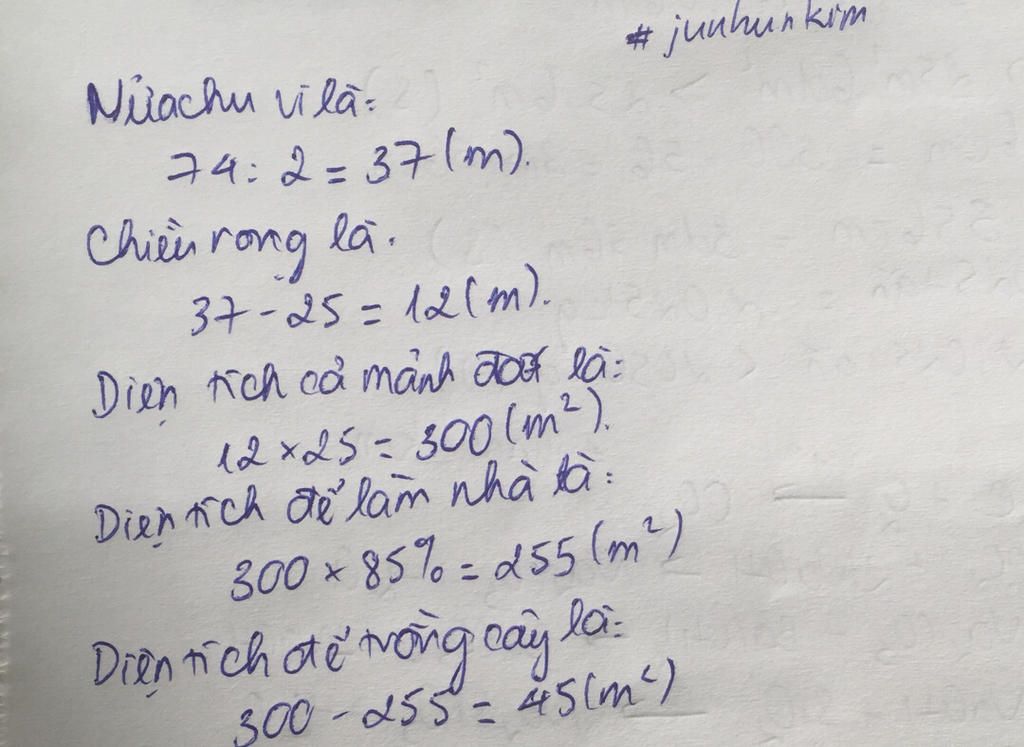 # junhunkim
Nửa chu vi là:
74 : 2 = 37 (m).
Chiều rộng là.
37 - 25 = 12 (m).
Diện tích cả mảnh đất là:
12 x 25 = 300 (m²).
Diện tích để làm nhà là:
300 x 85% = 255 (m²)
Diện tích để trồng cây là:
300 - 255 = 45 (m²)